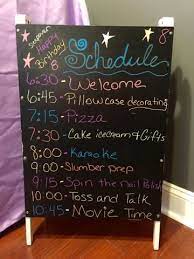 Happy
Birthday
Schedule
8
6:30 - Welcome
6:45 - Pillowcase decorating
7:15 - Pizza
7:30 - Cake icecream & Gifts
8:00 - Karaoke
9:00 - Slumber prep
9:15 - Spin the nail Polish
10:00 - Toss and Talk
10:45 - Movie Time